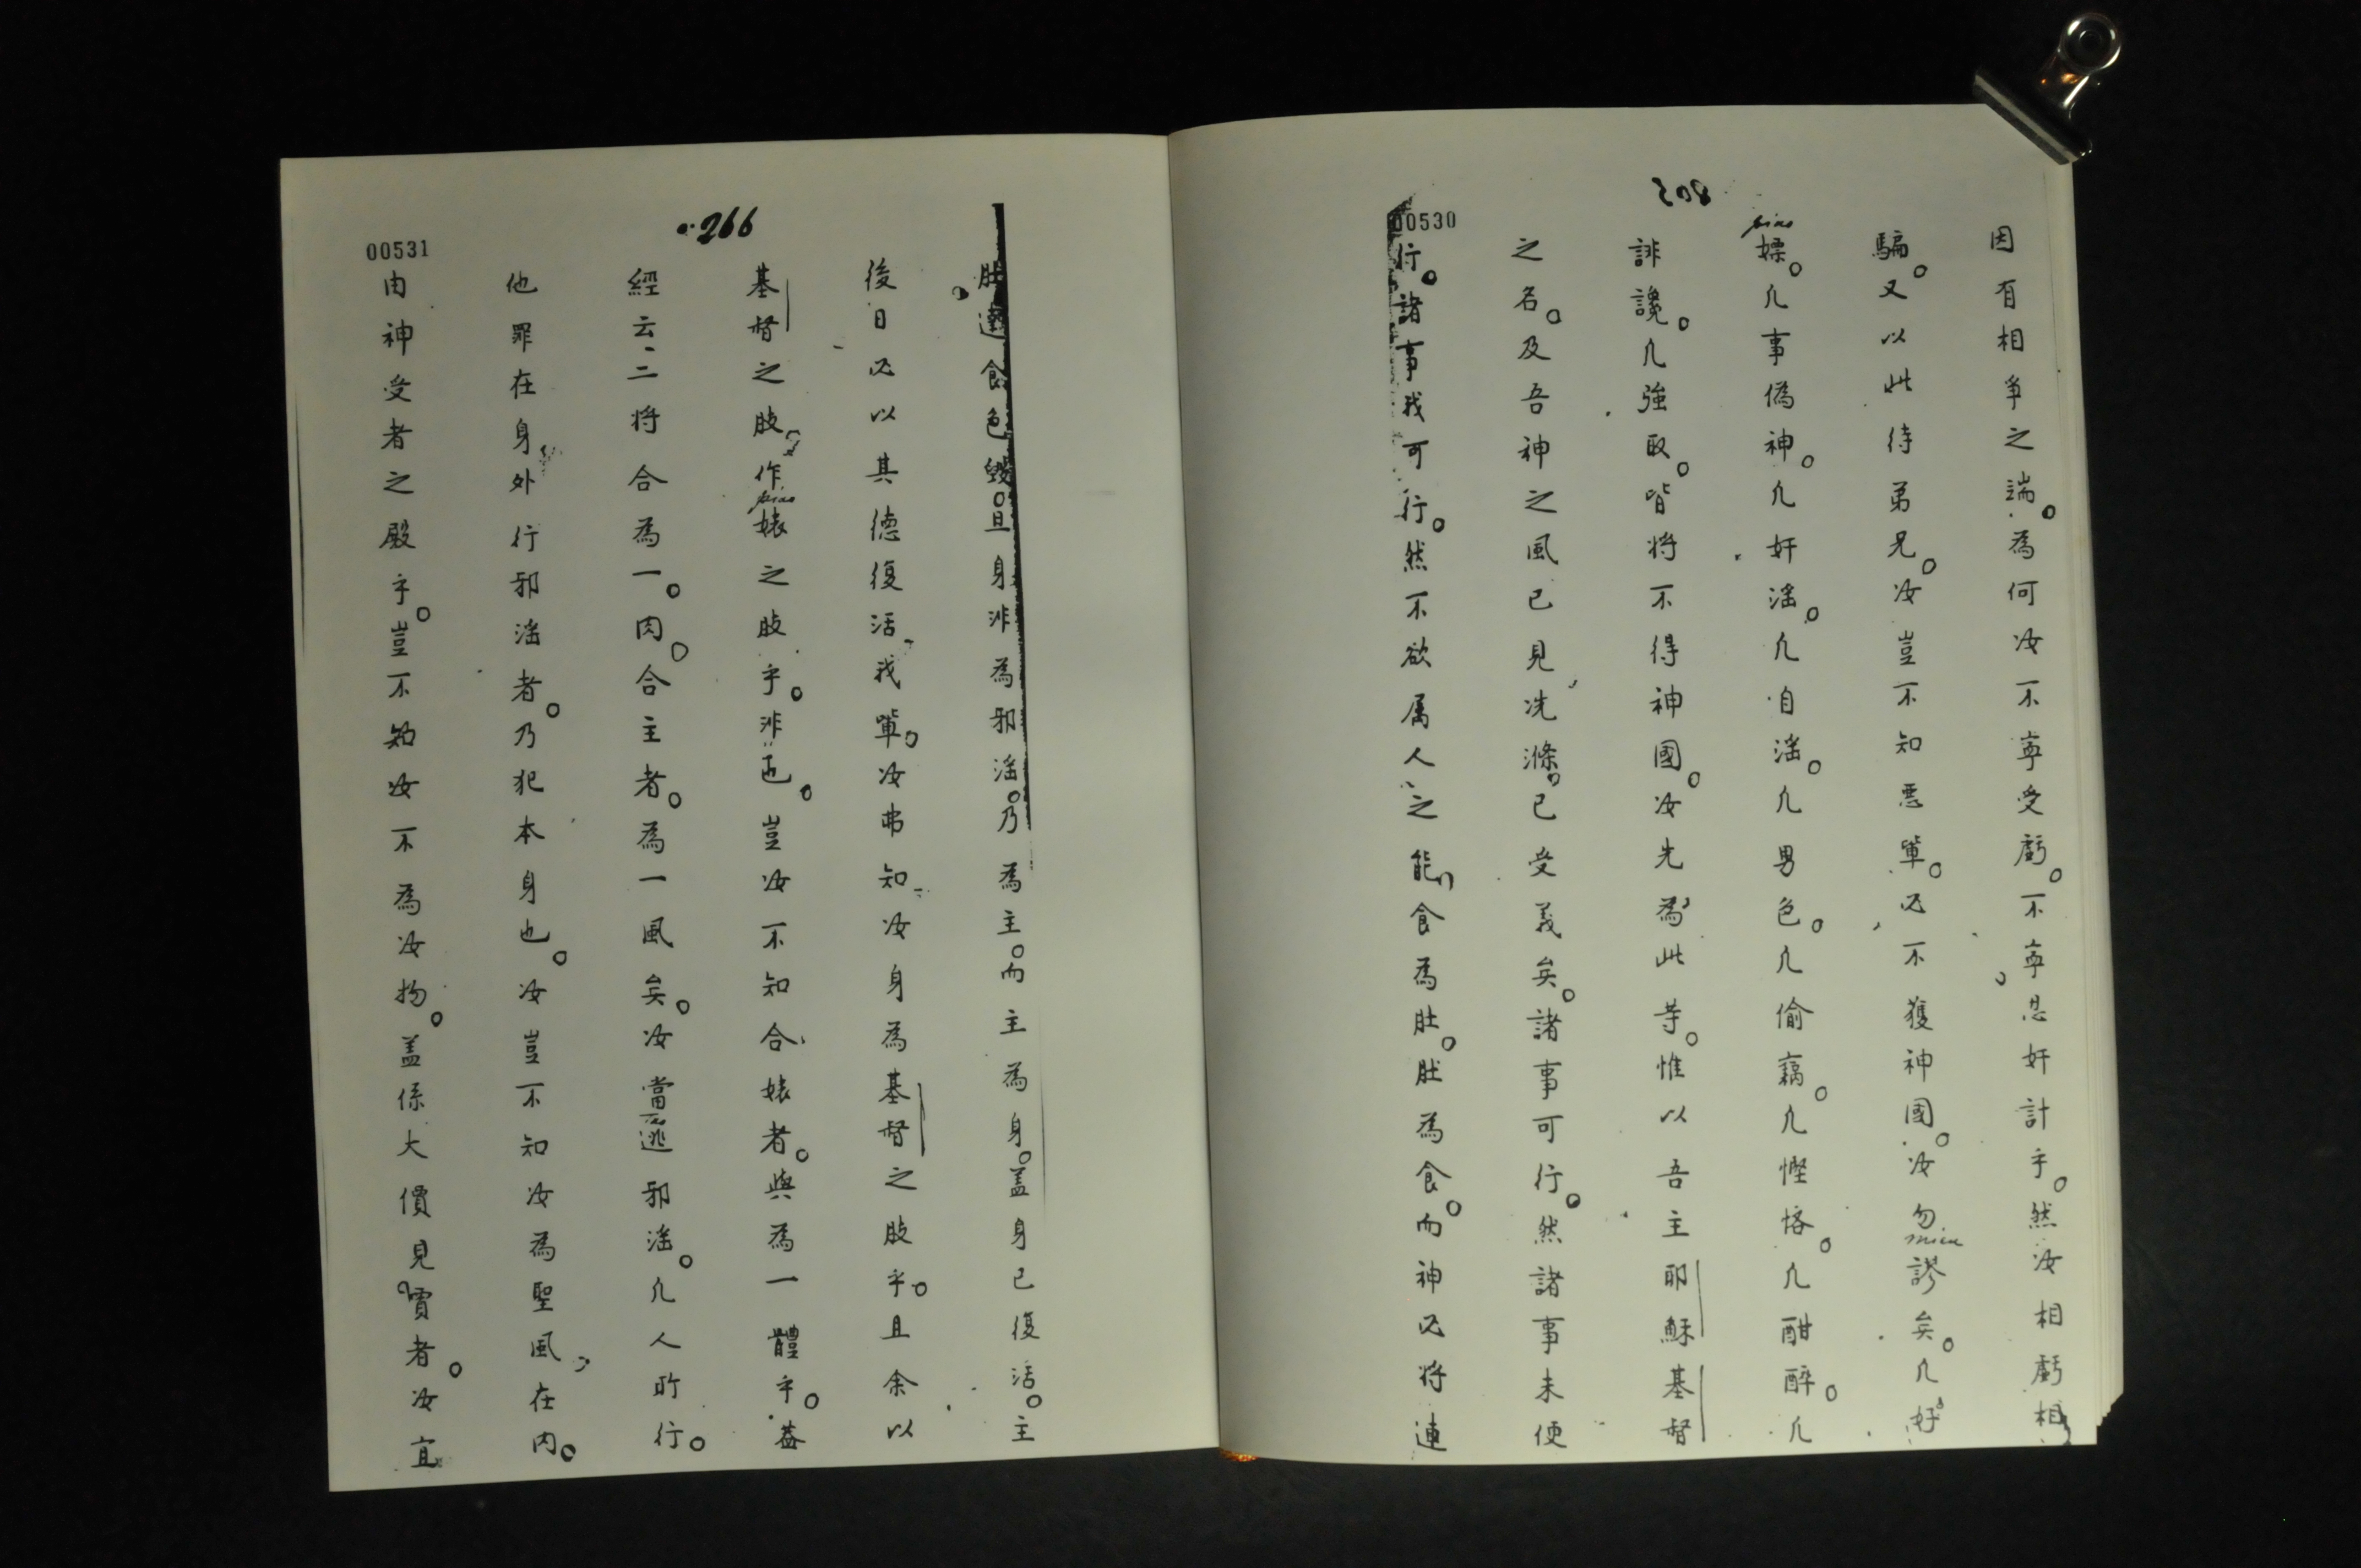 208
00530
因有相爭之端。為何汝不寧受虧。不寧忍奸計乎。然汝相虧相
騙。又以此待弟兄。汝豈不知悪軰。必不獲神國。汝勿謬矣。凢好
嫖。凢事偽神。凢奸滛。凢自滛。凢男色。凢偷竊。凢慳悋。凢酣醉。凢
誹讒。凢強取。皆將不得神國。汝先為此等。惟以吾主耶穌基督
之名。及吾神之風已見洗滌。已受義矣。諸事可行。然諸事未便
行。諸事我可行。然不欲属人之能。食為肚。肚為食。而神必將連
266
00531
肚連食色毀。且身非為邪滛。乃為主。而主為身。盖身已復活。主
後日必以其德復活我軰。汝弗知汝身為基督之肢乎。且余以
基督之肢。作婊之肢乎。非也。豈汝不知合婊者。與為一體乎。蓋
經云二將合為一肉。合主者。為一風矣。汝當逃邪滛。凢人所行。
他罪在身外行邪滛者。乃犯本身也。汝豈不知汝為聖風在內。
由神受者之殿乎。豈不知汝不為汝物。盖係大價見買者。汝宜